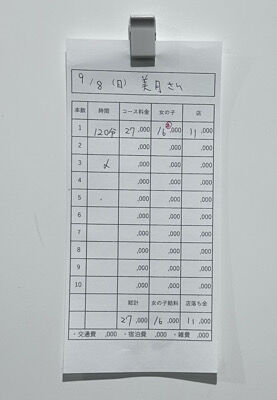 9/8 (日) 美月さん
本数 時間 コース料金 女の子 店
1 120分 27,000 16,000 11,000
2 ,000 ,000 ,000
3 〆 ,000 ,000 ,000
4 ,000 ,000 ,000
5 ,000 ,000 ,000
6 ,000 ,000 ,000
7 ,000 ,000 ,000
8 ,000 ,000 ,000
9 ,000 ,000 ,000
10 ,000 ,000 ,000
総計 女の子給料 店落ち金
27,000 16,000 11,000
・交通費 ,000 ・宿泊費 ,000 ・雑費 ,000